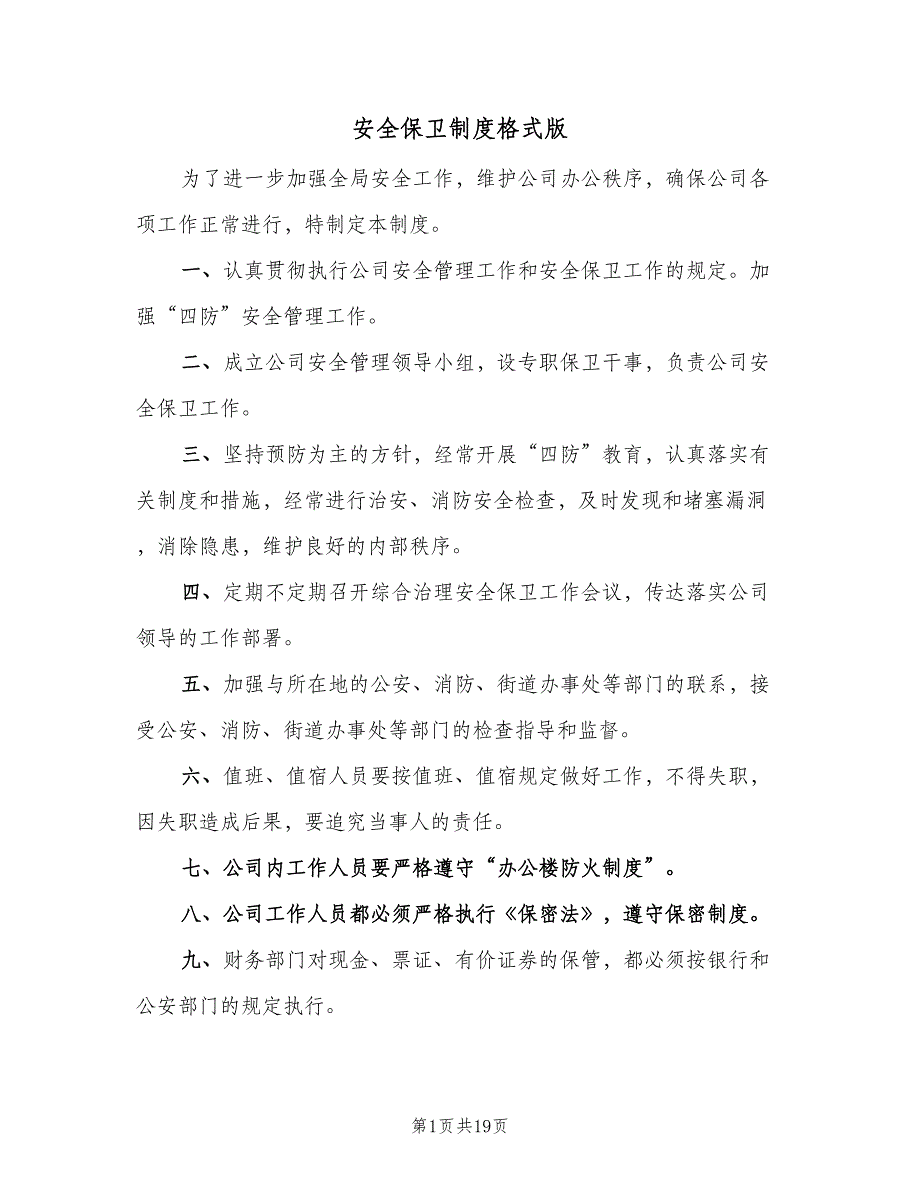 安全保卫制度格式版
为了进一步加强全局安全工作，维护公司办公秩序，确保公司各
项工作正常进行，特制定本制度。
一、认真贯彻执行公司安全管理工作和安全保卫工作的规定。加
强“四防”安全管理工作。
二、成立公司安全管理领导小组，设专职保卫干事，负责公司安
全保卫工作。
三、坚持预防为主的方针，经常开展“四防”教育，认真落实有
关制度和措施，经常进行治安、消防安全检查，及时发现和堵塞漏洞
，消除隐患，维护良好的内部秩序。
四、定期不定期召开综合治理安全保卫工作会议，传达落实公司
领导的工作部署。
五、加强与所在地的公安、消防、街道办事处等部门的联系，接
受公安、消防、街道办事处等部门的检查指导和监督。
六、值班、值宿人员要按值班、值宿规定做好工作，不得失职，
因失职造成后果，要追究当事人的责任。
七、公司内工作人员要严格遵守“办公楼防火制度”。
八、公司工作人员都必须严格执行《保密法》，遵守保密制度。
九、财务部门对现金、票证、有价证券的保管，都必须按银行和
公安部门的规定执行。
第1页共19页